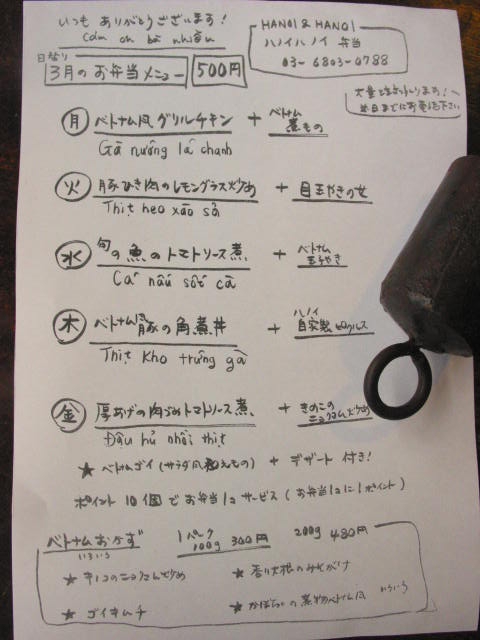 いつも ありがとうございます!
Cảm ơn bà nhiều
HANOI & HANOI
ハノイハノイ 弁当
03-6803-0788
日替り
3月のお弁当メニュー 500円
前日までにお電話下さい
月 ベトナム風グリルチキン + ベトナム煮もの
Gà nướng lá chanh
火 豚ひき肉のレモングラス炒め + 目玉やきの女
Thịt heo xào sả
水 旬の魚のトマトソース煮 + ベトナム玉子やき
Cá nấu sốt cà
木 ベトナム豚の角煮丼 + ハノイ自家製ピクルス
Thịt kho trứng gà
金 厚あげの肉づめトマトソース煮 + きのこのニョクマム炒め
Đậu hủ nhồi thịt
★ ベトナムゴイ (サラダ風和えもの) + デザート 付き!
ポイント 10個でお弁当1コサービス (お弁当1コに1ポイント)
ベトナムおかず いろいろ 1パック 100g 300円 200g 480円
★ キノコのニョクマム炒め
★ 大根のみそがけ
★ ゴイキムチ
★ かぼちゃの煮物ベトナム風 いろいろ